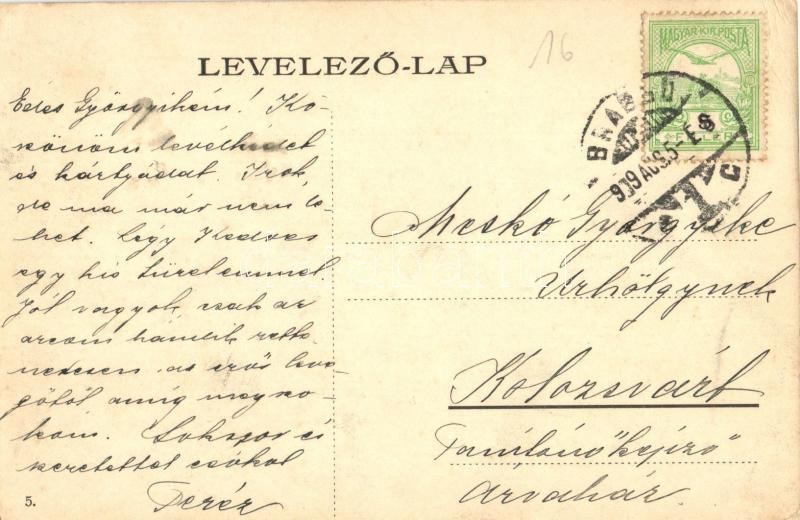 16
MAGYAR·KIR·POSTA
LEVELEZŐ-LAP
BRASSÓ
909 AUG 5
Édes Gyöngyikém! Kö-
szönöm levélkédet
és kártyádat. Irok
de ma már nem le-
het. Légy kedves
egy kis türelemmel.
Jól vagyok, csak az
arcom hámlik rette-
netesen az erős leve-
gőtől amíg megszo-
kom. Sokszor és
szeretettel csókol
Teréz
Meskó Gyöngyike
Urhölgynek
Kolozsvárt
Tanítónőképző
Árvaház.
5.